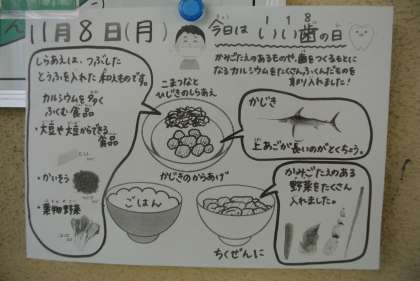 11月8日(月)
今日は いい歯の日
1 1 8
かみごたえのあるものや、歯をつくるもとに
なるカルシウムをたくさんふくんだものを
取り入れました!
しらあえは、つぶした
とうふを入れた和えものです。
カルシウムを多く
ふくむ食品
・大豆や大豆からできる
食品
・かいそう
・葉物野菜
こまつなと
ひじきのしらあえ
かじきのからあげ
ごはん
ちくぜんに
かじき
上あごが長いのがとくちょう。
かみごたえのある
野菜をたくさん
入れました。